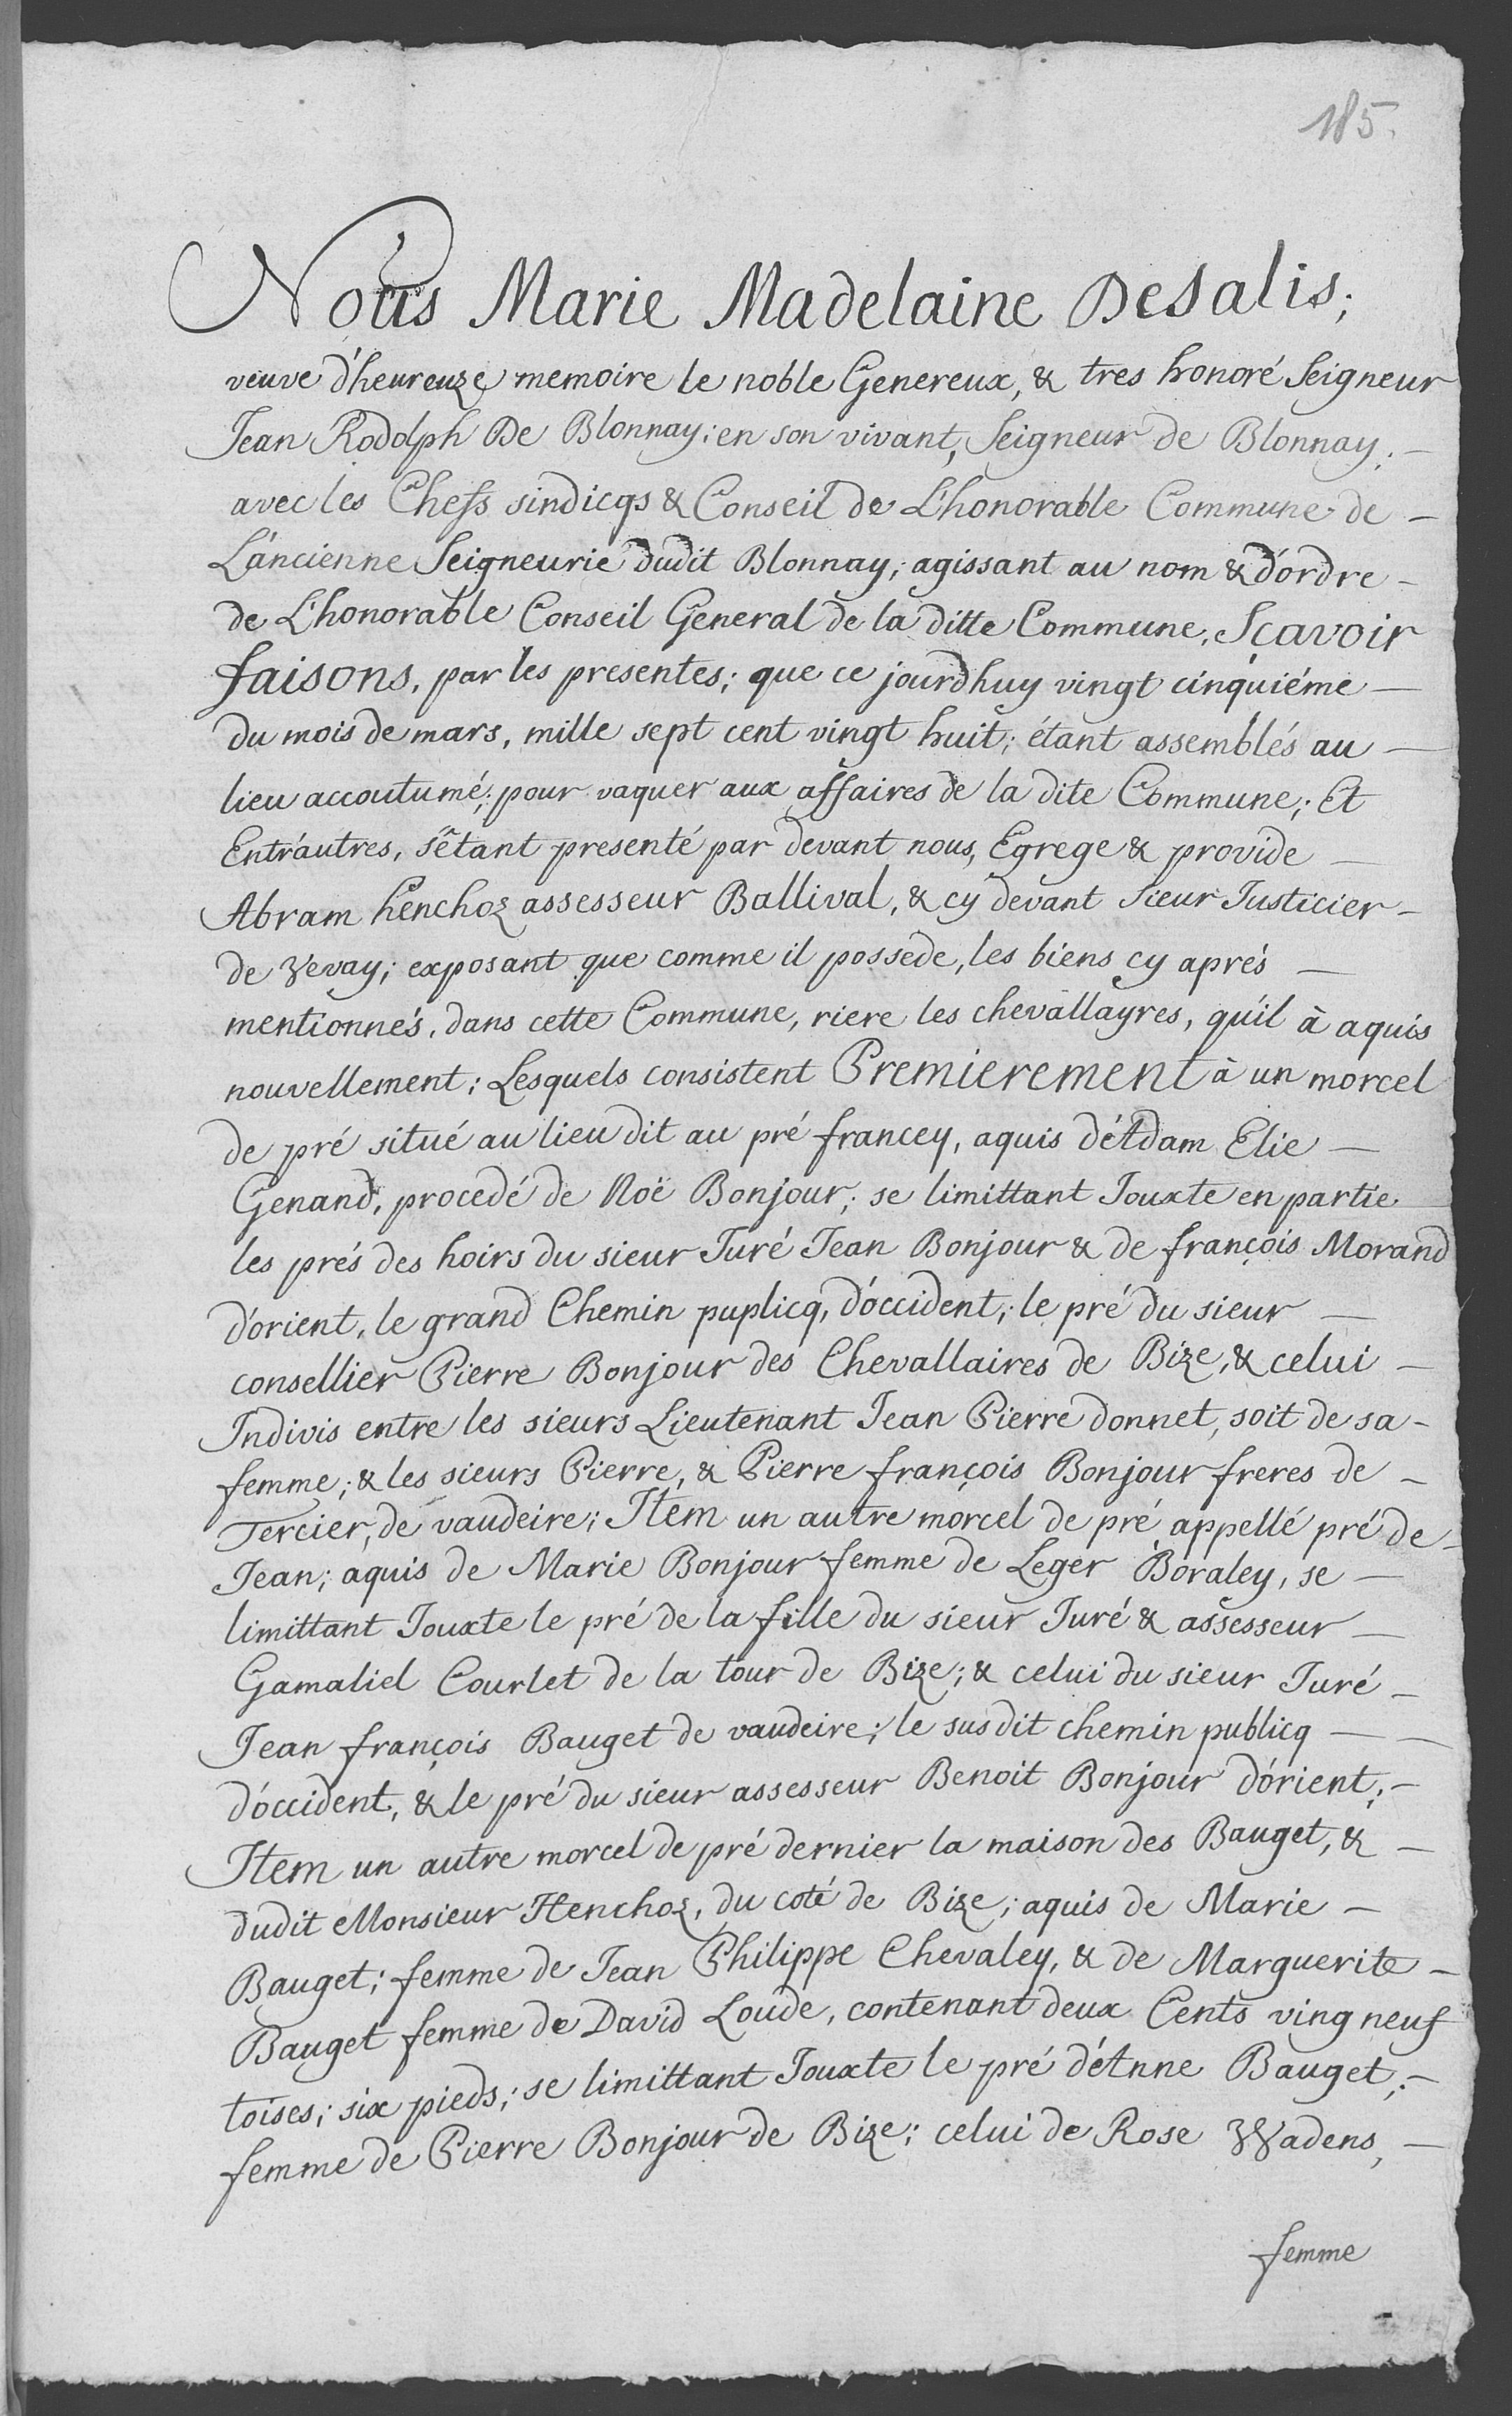 185.
Nous Marie Madelaine Desalis;
veuve d'heureuze memoire le noble Genereux, & tres honoré Seigneur
Jean Rodolph De Blonnay; en son vivant, Seigneur de Blonnay; —
avec les Cheffs sindicqs & Conseil de L'honorable Commune de —
L'ancienne Seigneurie dudit Blonnay; agissant au nom & d'ordre —
de L'honorable Conseil General de la ditte Commune, Sçavoir
faisons, par les presentes; que ce jourdhuy vingt cinquiéme —
du mois de mars, mille sept cent vingt huit; étant assemblés au —
lieu accoutumé; pour vaquer aux affaires de la dite Commune; Et
Entr'autres, s'étant presenté par devant nous, Egrege & provide —
Abram henchoz assesseur Ballival, & cy devant Sieur Justicier —
de Vevay; exposant que comme il possede, les biens cy aprés —
mentionnés, dans cette Commune, riere les chevallayres, qu'il à aquis
nouvellement; Lesquels consistent Premierement à un morcel
de pré situé au lieu dit au pré francey, aquis d'Adam Elie —
Genand, procedé de Noë Bonjour; se limittant Jouxte en partie
les prés des hoirs du sieur Juré Jean Bonjour & de françois Morand
d'orient, le grand Chemin puplicq, d'occident; le pré du sieur —
consellier Pierre Bonjour des Chevallaires de Bize, & celui —
Indivis entre les sieurs Lieutenant Jean Pierre donnet, soit de sa —
femme; & les sieurs Pierre, & Pierre françois Bonjour freres de —
Tercier, de vaudeire; Item un autre morcel de pré appellé pré de —
Jean; aquis de Marie Bonjour femme de Leger Boraley, se —
limittant Jouxte le pré de la fille du sieur Juré & assesseur —
Gamaliel Courlet de la tour de Bize; & celui du sieur Juré —
Jean françois Bauget de vaudeire; le susdit chemin publicq —
d'occident, & le pré du sieur assesseur Benoit Bonjour d'orient; —
Item un autre morcel de pré dernier la maison des Bauget, & —
dudit Monsieur Henchoz, du coté de Bize; aquis de Marie —
Bauget; femme de Jean Philippe Chevaley, & de Marguerite —
Bauget femme de David Loude, contenant deux Cents ving neuf
toises; six pieds; se limittant Jouxte le pré d'Anne Bauget; —
femme de Pierre Bonjour de Bize; celui de Rose Wadens, —
femme